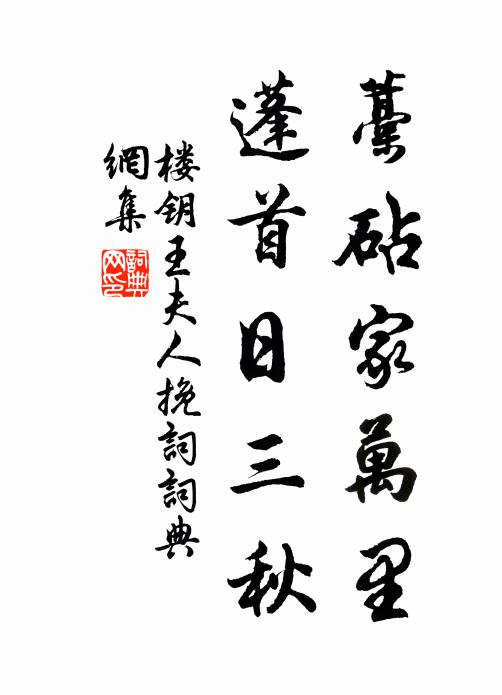 藁砧家萬里
蓬首日三秋
楼钥王夫人挽詞詞典
網集
詞典
网印